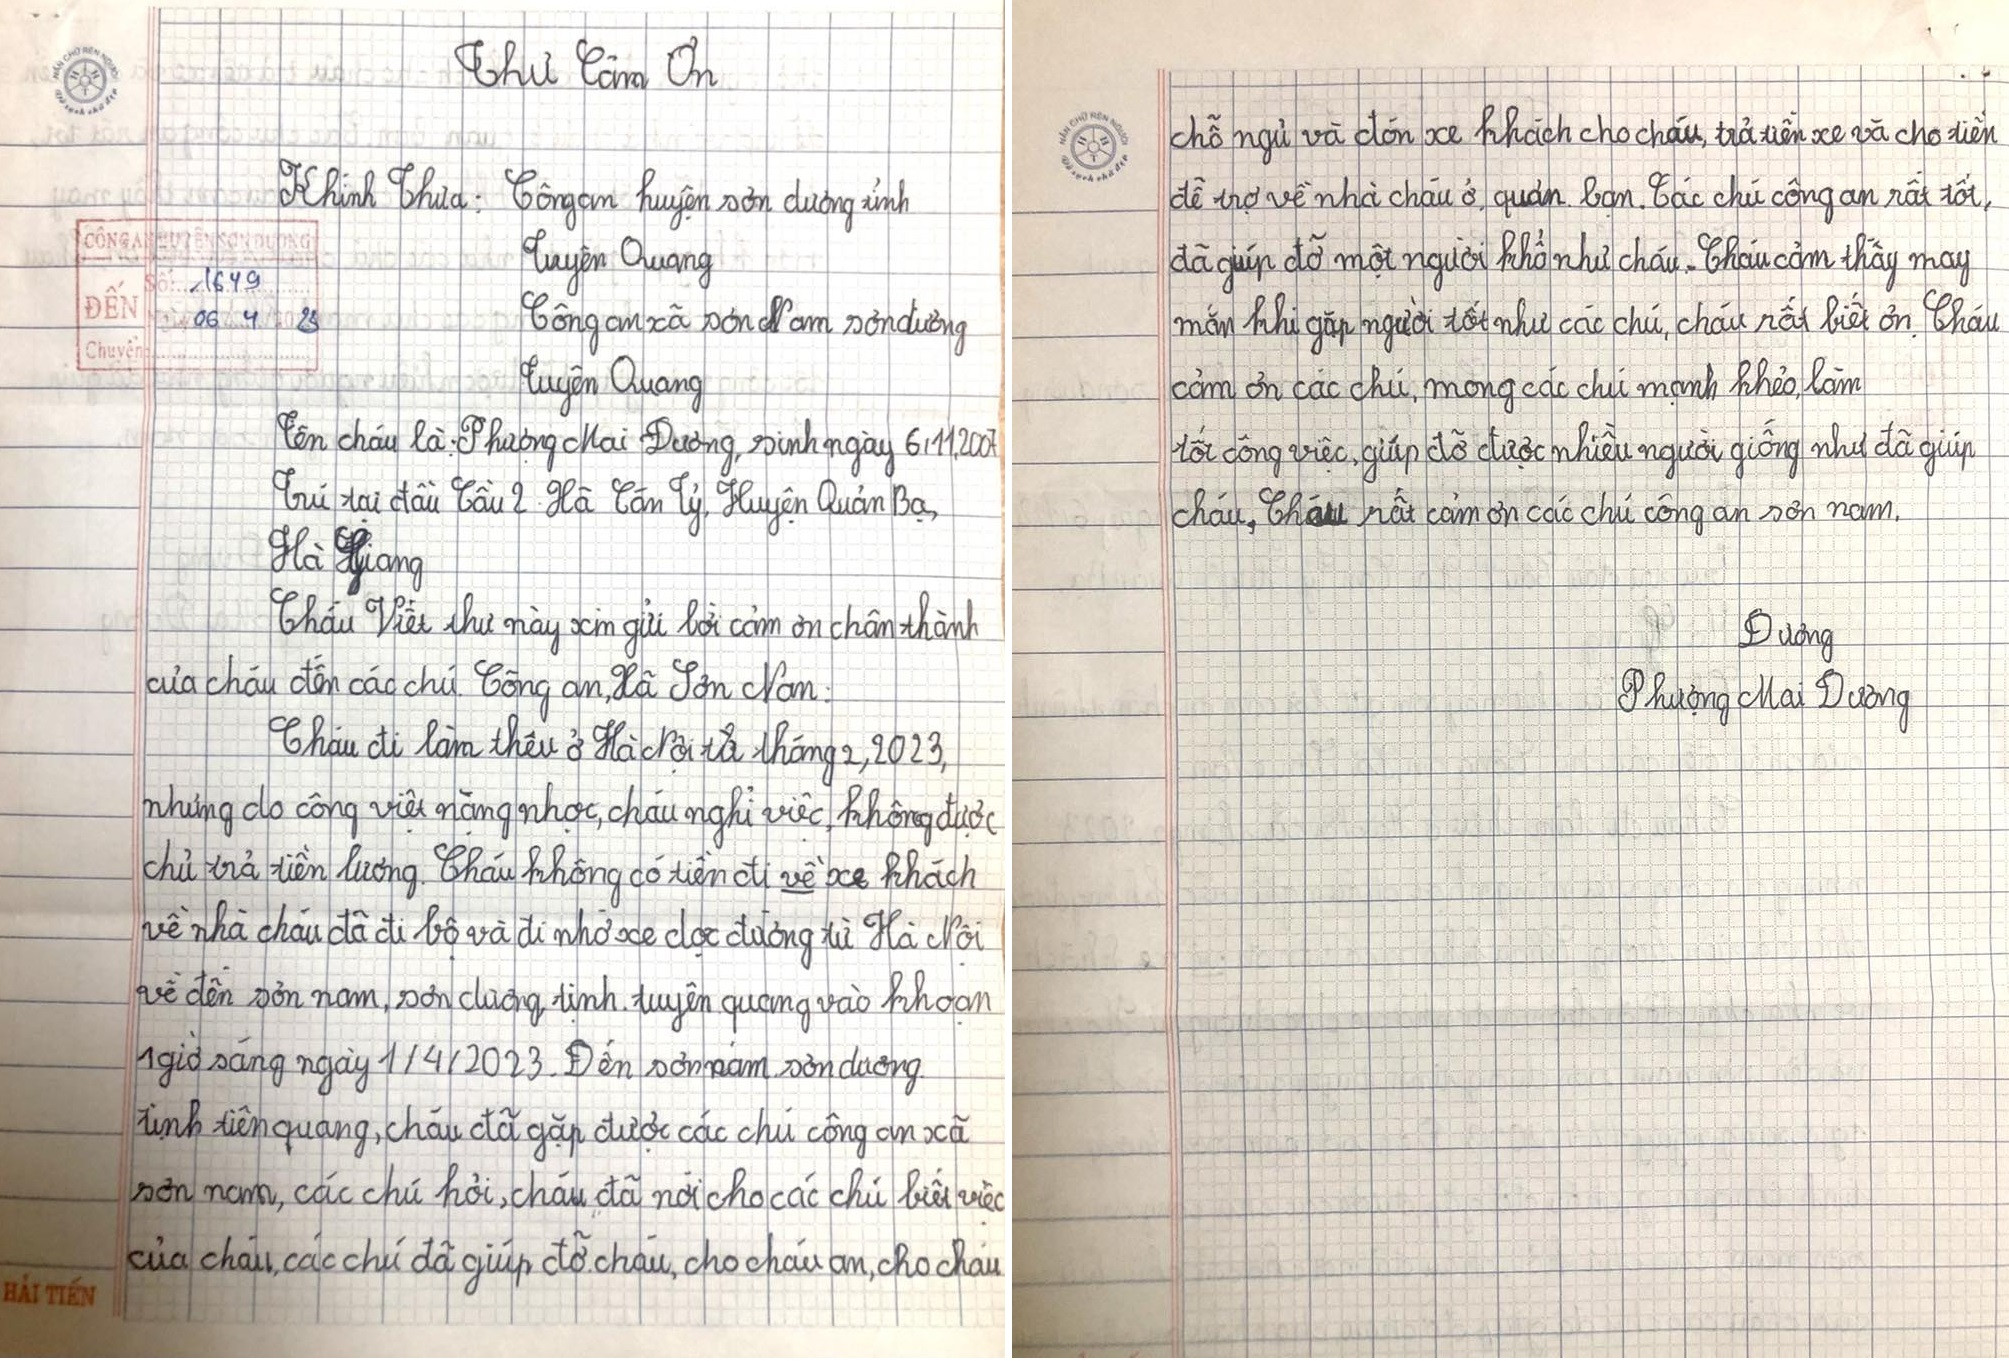 NẮN CHỮ RÈN NGƯỜI
Thư Cảm Ơn
Khình Thưa: Công an huyện sơn dương tỉnh
Tuyên Quang
CÔNG AN HUYỆN SƠN DƯƠNG
Số: 1649
ĐẾN 06 4 23
Chuyên:
Công an xã sơn Nam sơn dương
Tuyên Quang
Tên cháu là: Phượng Mai Dương, sinh ngày 6,11,2007
Trú tại đầu Cầu 2 Hà Cán Tỷ, Huyện Quản Bạ,
Hà Giang
Cháu Viết thư này xin gửi lời cảm ơn chân thành
của cháu đến các chú Công an, Xã Sơn Nam:
Cháu đi làm thêu ở Hà Nội từ tháng 2, 2023,
nhưng do công việt nặng nhọc, cháu nghỉ việc, không được
chủ trả tiền lương. Cháu không có tiền đi về xe khách
về nhà cháu đã đi bộ và đi nhờ xe dọc đường từ Hà Nội
về đến sơn nam, sơn dương, tịnh tuyên quang vào khoạn
1 giờ sáng ngày 1/4/2023. Đến sơn nam sơn dương
tỉnh tiên quang, cháu đã gặp được các chú công an xã
sơn nam, các chú hỏi, cháu đã nói cho các chú biết việc
của cháu, các chú đã giúp đỡ cháu, cho cháu ăn, cho cháu
HẢI TIẾN
NẮN CHỮ RÈN NGƯỜI
chỗ ngủ và đón xe khách cho cháu, trả tiền xe và cho tiền
để trợ về nhà cháu ở quản bạn. Các chú công an rất tốt,
đã giúp đỡ một người khổ như cháu. Cháu cảm thấy may
mắn khi gặp người tốt như các chú, cháu rất biết ơn. Cháu
cảm ơn các chú, mong các chú mạnh khẻo, làm
tốt công việc, giúp đỡ được nhiều người giống như đã giúp
cháu, Cháu rất cảm ơn các chú công an sơn nam.
Dương
Phượng Mai Dương